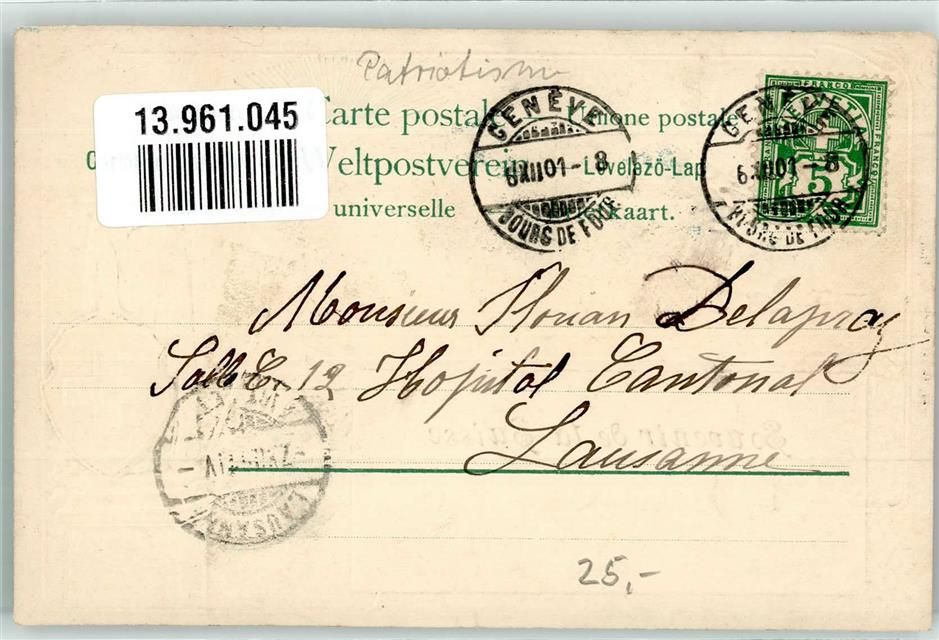 Patriotism
13.961.045
Carte postale
Unione postale
Weltpostverein
Levelező-Lap
universelle
kaart.
GENÈVE
6 XII 01 - 8
BOURG DE FOUR
GENÈVE
6 XII 01 - 8
BOURG DE FOUR
FRANCO
HELVETIA
5
FRANCO
Monsieur Florian Delapraz
Salle E. 12 Hopital Cantonal
Lausanne
Souvenir de la Suisse
LAUSANNE
25,-